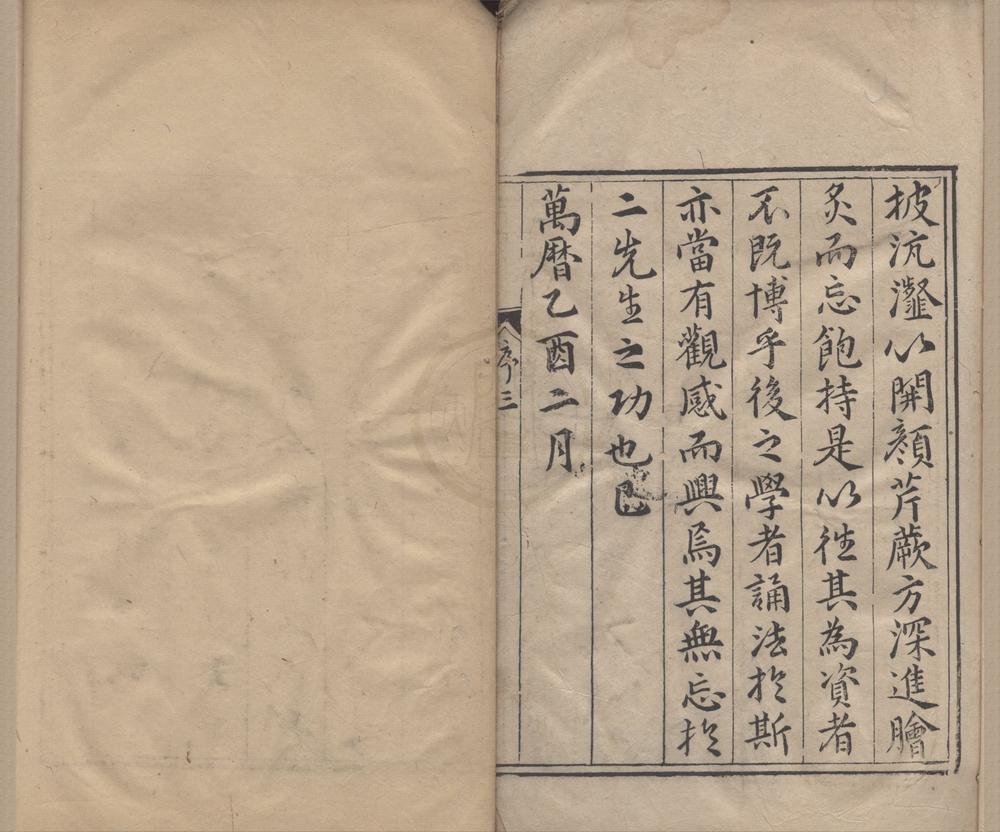 披沆瀣以開顏芹蕨方深進膾
炙而忘飽持是以徃其為資者
不既博乎後之學者誦法於斯
亦當有觀感而興焉其無忘於
二先生之功也已
萬曆乙酉二月
序三